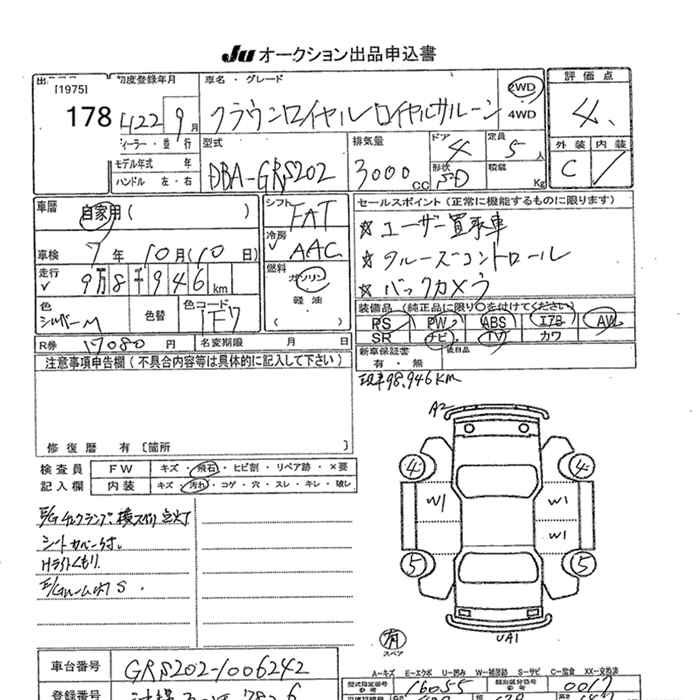 Ju オークション出品申込書
[1975]
178
初度登録年月
H22 9月
車名・グレード
クラウンロイヤル ロイヤルサルーン
2WD
4WD
評価点
4.
外装 内装
C
ディーラー・並行
モデル年式 年
ハンドル 左・右
型式
DBA-GRS202
排気量
3000cc
ドア
4
形状
SD
定員
5人
積載
Kg
車歴
自家用( )
車検 7年 10月(10日)
走行 9万8千946km
色 シルバーM
色替
色コード 1F7
R券 17080円
名変期限 月 日
シフト FAT
冷房 AAC
燃料 ガソリン
軽油
( )
セールスポイント(正常に機能するものに限ります)
☆ユーザー買取車
☆クルーズコントロール
☆バックカメラ
装備品(純正品に限り○を付けてください)
PS PW ABS エアB AW
SR ナビ TV カワ
新車保証書
有・無
後日品
現車98,946KM
注意事項申告欄(不具合内容等は具体的に記入して下さい)
修復歴 有〔箇所 〕
検査員 FW キズ・飛石・ヒビ割・リペア跡・×要
記入欄 内装 キズ・汚れ・コゲ・穴・スレ・キレ・破レ
E/Gチェックランプ、横スベリ点灯
シートカバーつき.
Hライトくもり.
A2
4 4
W1 W1
W1
5 5
UA1
有
スペア
A−キズ E−エクボ U−凹み W−補修跡 S−サビ C−腐食 XX−交換済
車台番号 GRS202-1006242
型式指定番号 16055
類別区分番号 0017
登録番号